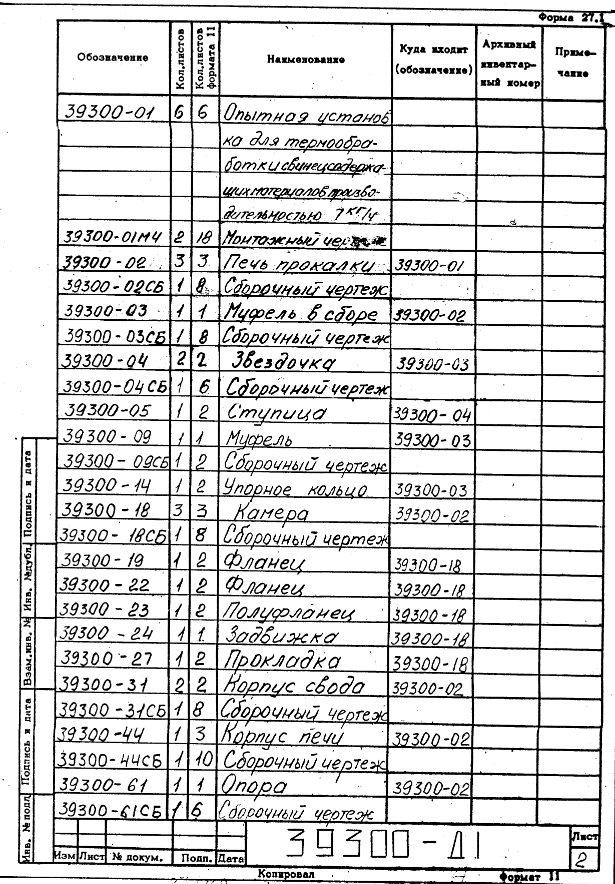 Форма 27.1
Обозначение Кол.листов Кол.листов формата 11 Наименование Куда входит (обозначение) Архивный инвентарный номер Примечание
39300-01 6 6 Опытная установ
ка для термообра-
ботки свинецсодержа-
щих материалов произво-
дительностью 7 кг/ч
39300-01МЧ 2 18 Монтажный чертеж
39300-02 3 3 Печь прокалки 39300-01
39300-02СБ 1 8 Сборочный чертеж
39300-03 1 1 Муфель в сборе 39300-02
39300-03СБ 1 8 Сборочный чертеж
39300-04 2 2 Звездочка 39300-03
39300-04СБ 1 6 Сборочный чертеж
39300-05 1 2 Ступица 39300-04
39300-09 1 1 Муфель 39300-03
39300-09СБ 1 2 Сборочный чертеж
39300-14 1 2 Упорное кольцо 39300-03
39300-18 3 3 Камера 39300-02
39300-18СБ 1 8 Сборочный чертеж
39300-19 1 2 Фланец 39300-18
39300-22 1 2 Фланец 39300-18
39300-23 1 2 Полуфланец 39300-18
39300-24 1 1 Задвижка 39300-18
39300-27 1 2 Прокладка 39300-18
39300-31 2 2 Корпус свода 39300-02
39300-31СБ 1 8 Сборочный чертеж
39300-44 1 3 Корпус печи 39300-02
39300-44СБ 1 10 Сборочный чертеж
39300-61 1 1 Опора 39300-02
39300-61СБ 1 6 Сборочный чертеж
Подпись и дата
Инв. №дубл.
Взам.инв. №
Подпись и дата
Инв. № подл.
39300-Д1
Лист
2
Изм Лист № докум. Подп. Дата
Копировал Формат 11